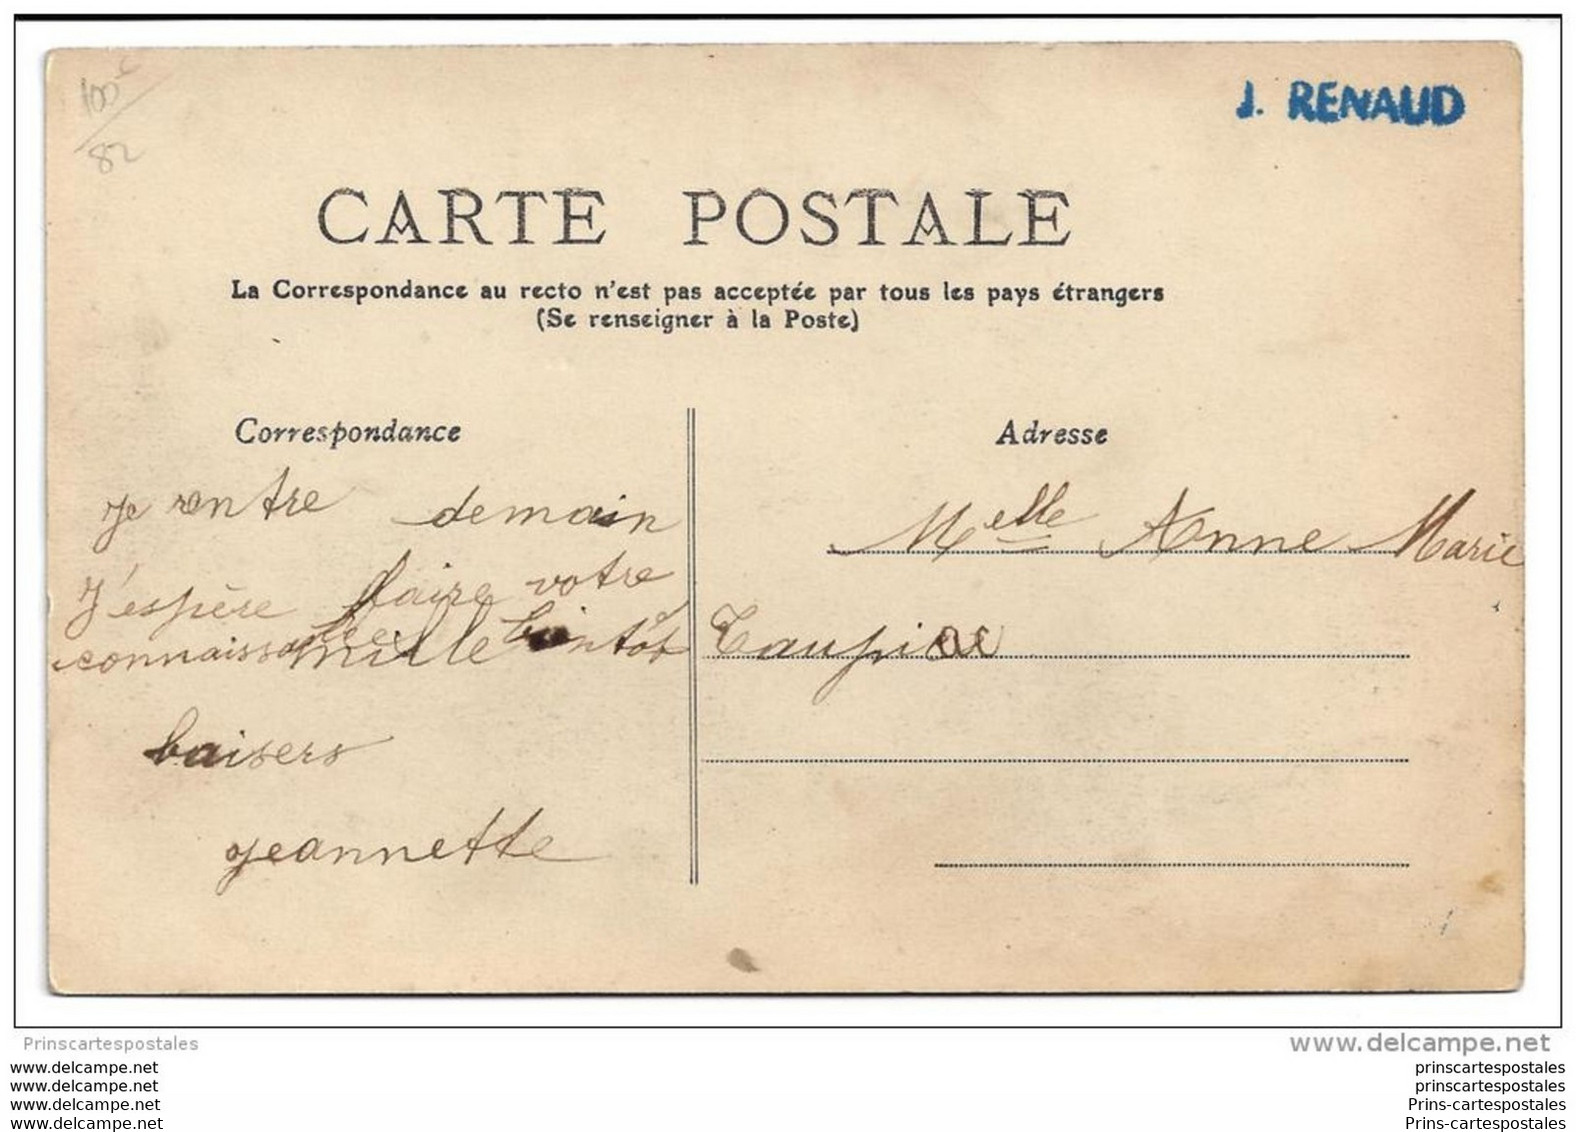 100
82
J. RENAUD
CARTE POSTALE
La Correspondance au recto n'est pas acceptée par tous les pays étrangers
(Se renseigner à la Poste)
Correspondance
je rentre demain
J'espère faire votre
connaissance bientôt
mille
baisers
jeannette
Adresse
Melle Anne Marie
Prinscartespostales
www.delcampe.net
www.delcampe.net
www.delcampe.net
www.delcampe.net
www.delcampe.net
princartespostales
princartespostales
Prins-cartespostales
Prins-cartespostales